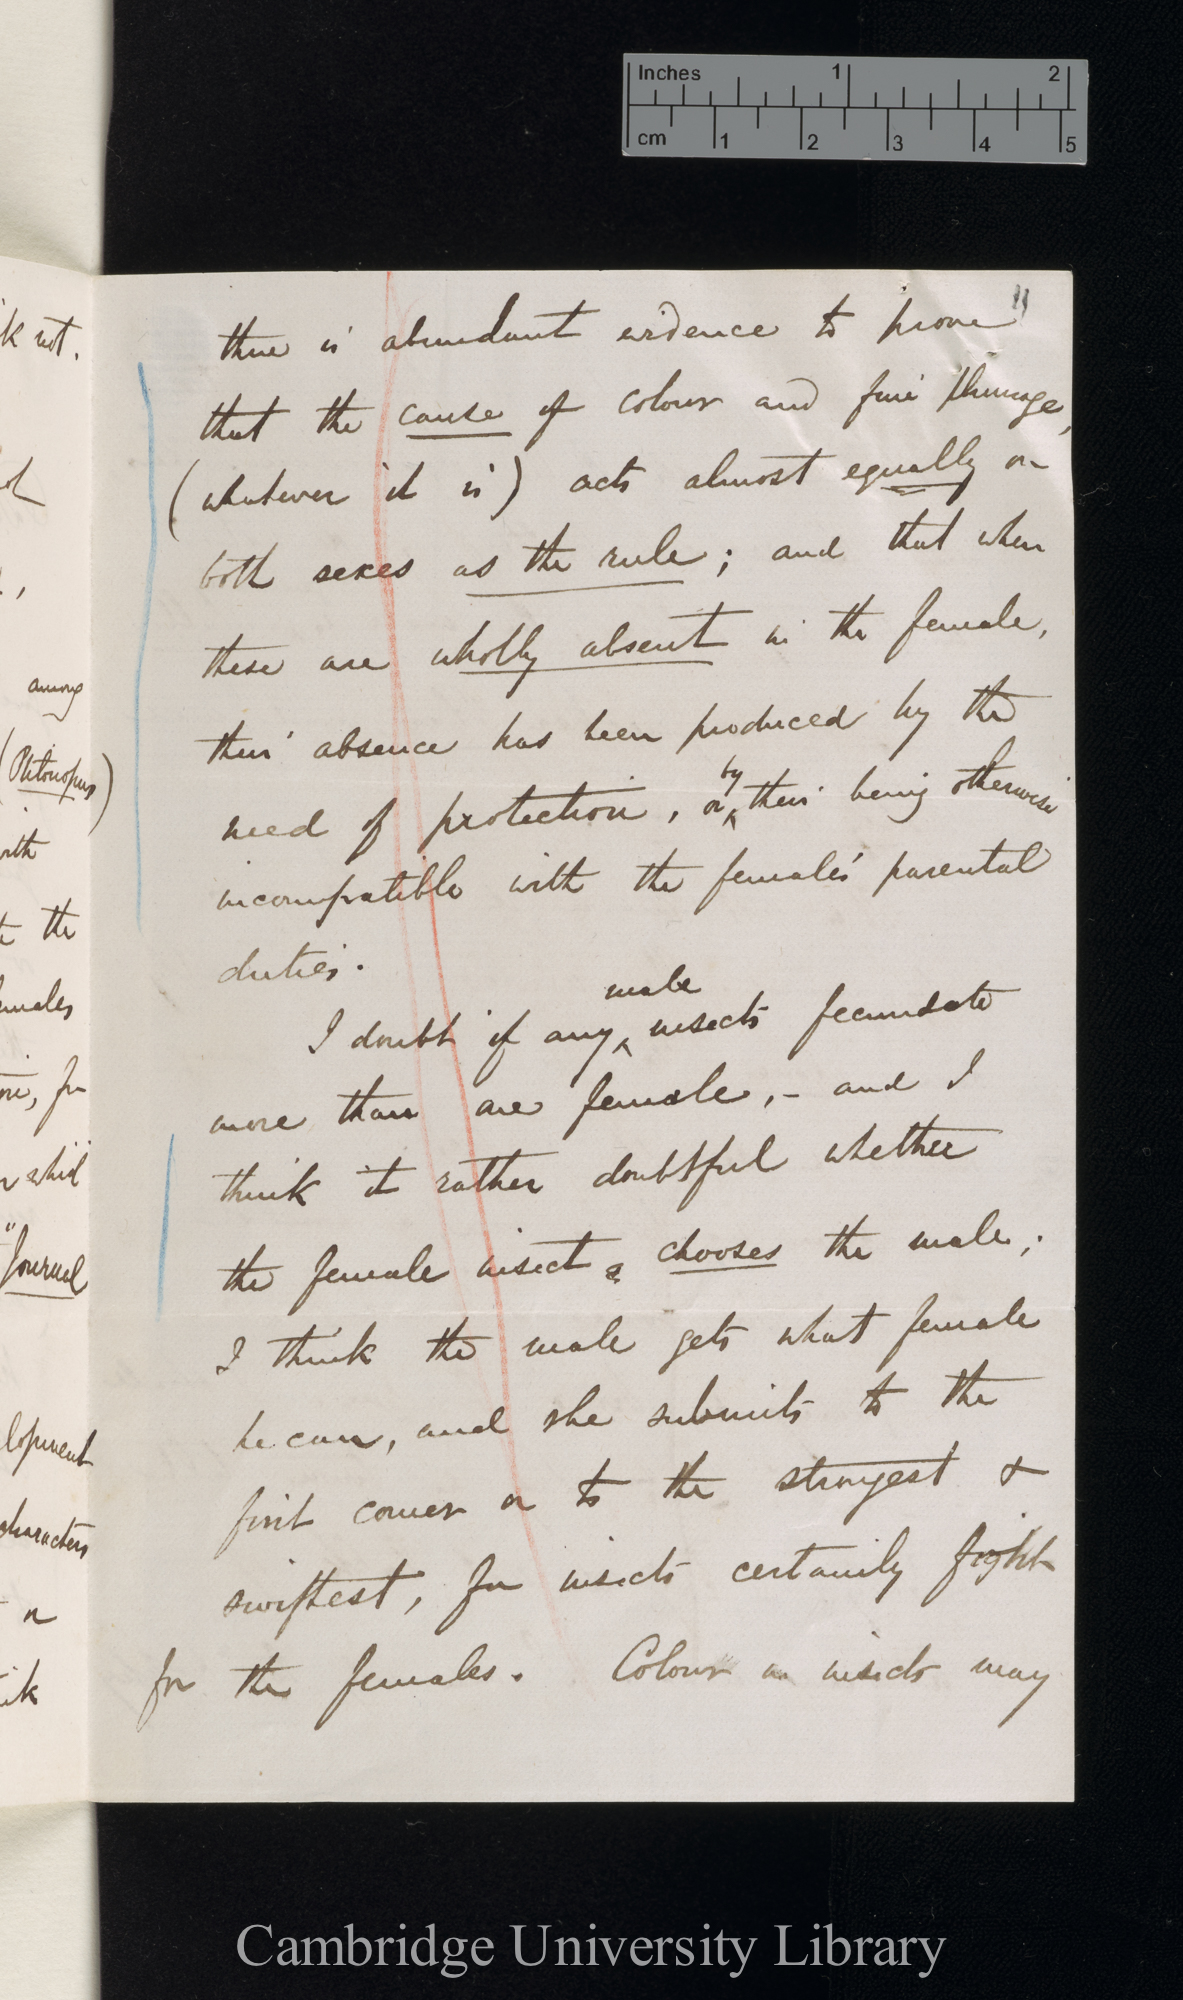 Inches 1 2
cm 1 2 3 4 5
11
there is abundant evidence to prove
that the cause of colour and fine plumage,
(whatever it is) acts almost equally on
both sexes as the rule; and that when
these are wholly absent in the female,
their absence has been produced by the
need of protection, or by their being otherwise
incompatible with the females' parental
duties.
I doubt if any male insects fecundate
more than one female,- and I
think it rather doubtful whether
the female insect chooses the male;
I think the male gets what female
he can, and she submits to the
first comer or to the strongest &
swiftest, for insects certainly fight
for the females. Colour in insects may
k not.
among
(Ptilonopus)
the
females
for
Journal
lopment
characters
Cambridge University Library